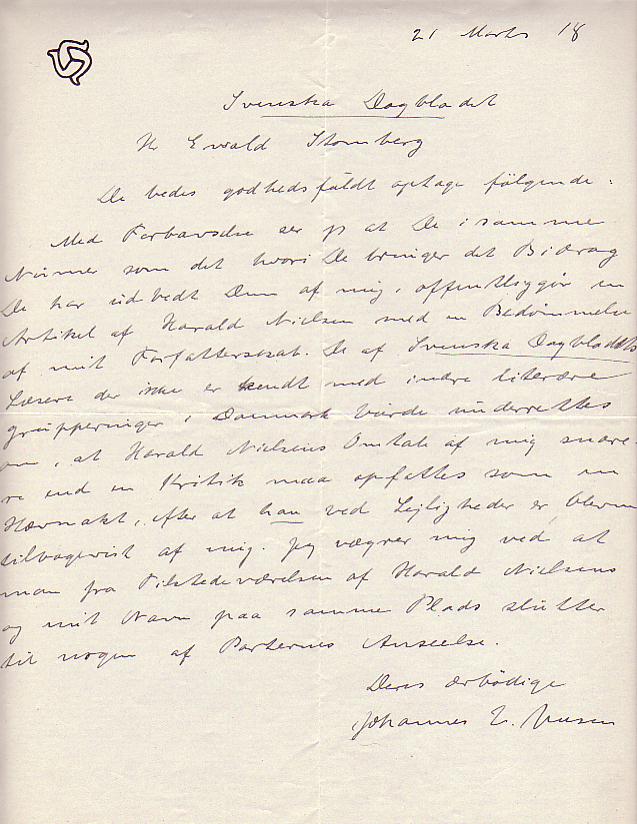 21 Marts 18
Svenska Dagbladet
Hr Ewald Stomberg
De bedes godhedsfuldt optage følgende:
Med Forbavselse ser jeg at De i samme
Numer som det hvori De bringer det Bidrag
De har udbedt Dem af mig, offentliggør en
Artikel af Harald Nielsen med en Bedømmelse
af mit Forfatterskab. De af Svenska Dagbladets
Læsere der ikke er kendt med indre literære
grupperinger i Danmark burde underrettes
om, at Harald Nielsens Omtale af mig snare-
re end en Kritik maa opfattes som en
Hævnakt, efter at han ved Lejligheder er bleven
tilbagevist af mig. Jeg vægrer mig ved at
man fra Tilstedeværelsen af Harald Nielsens
og mit Navn paa samme Plads slutter
til nogen af Parternes Anseelse.
Deres ærbødige
Johannes V. Jensen